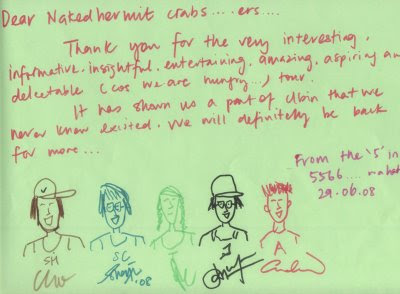 Dear Naked hermit crabs.....ers....
Thank you for the very interesting,
informative, insightful, entertaining, amazing, aspiring and
delectable (cos we are hungry...) tour.
It has shown us a part of Ubin that we
never knew existed. We will definitely be back
for more...
From the '5' in
5566....
29.06.08
SH
SC
J
A
'08